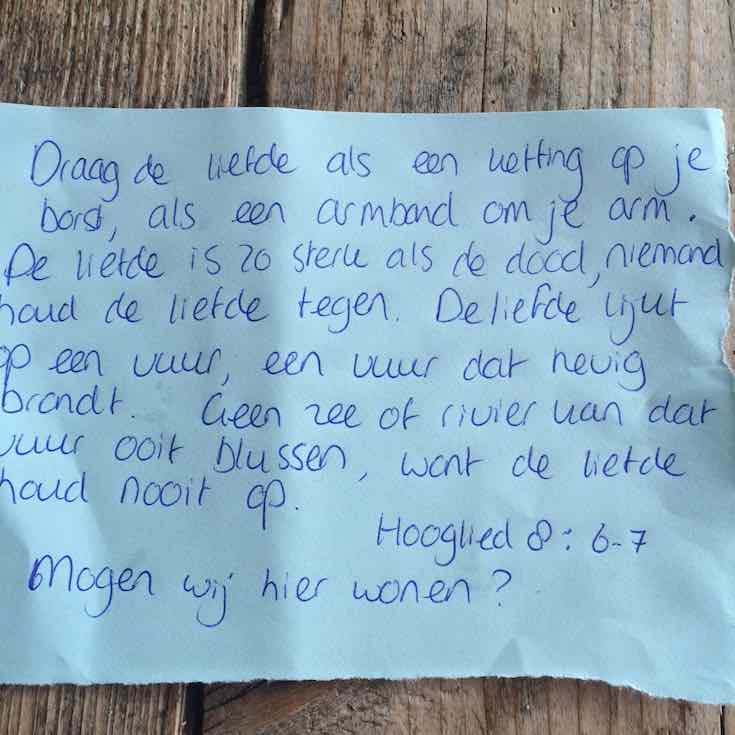 Draag de liefde als een ketting op je
borst, als een armband om je arm.
De liefde is zo sterk als de dood, niemand
houd de liefde tegen. De liefde lijkt
op een vuur, een vuur dat hevig
brandt. Geen zee of rivier kan dat
vuur ooit blussen, want de liefde
houd nooit op.
Hooglied 8: 6-7
Mogen wij hier wonen?